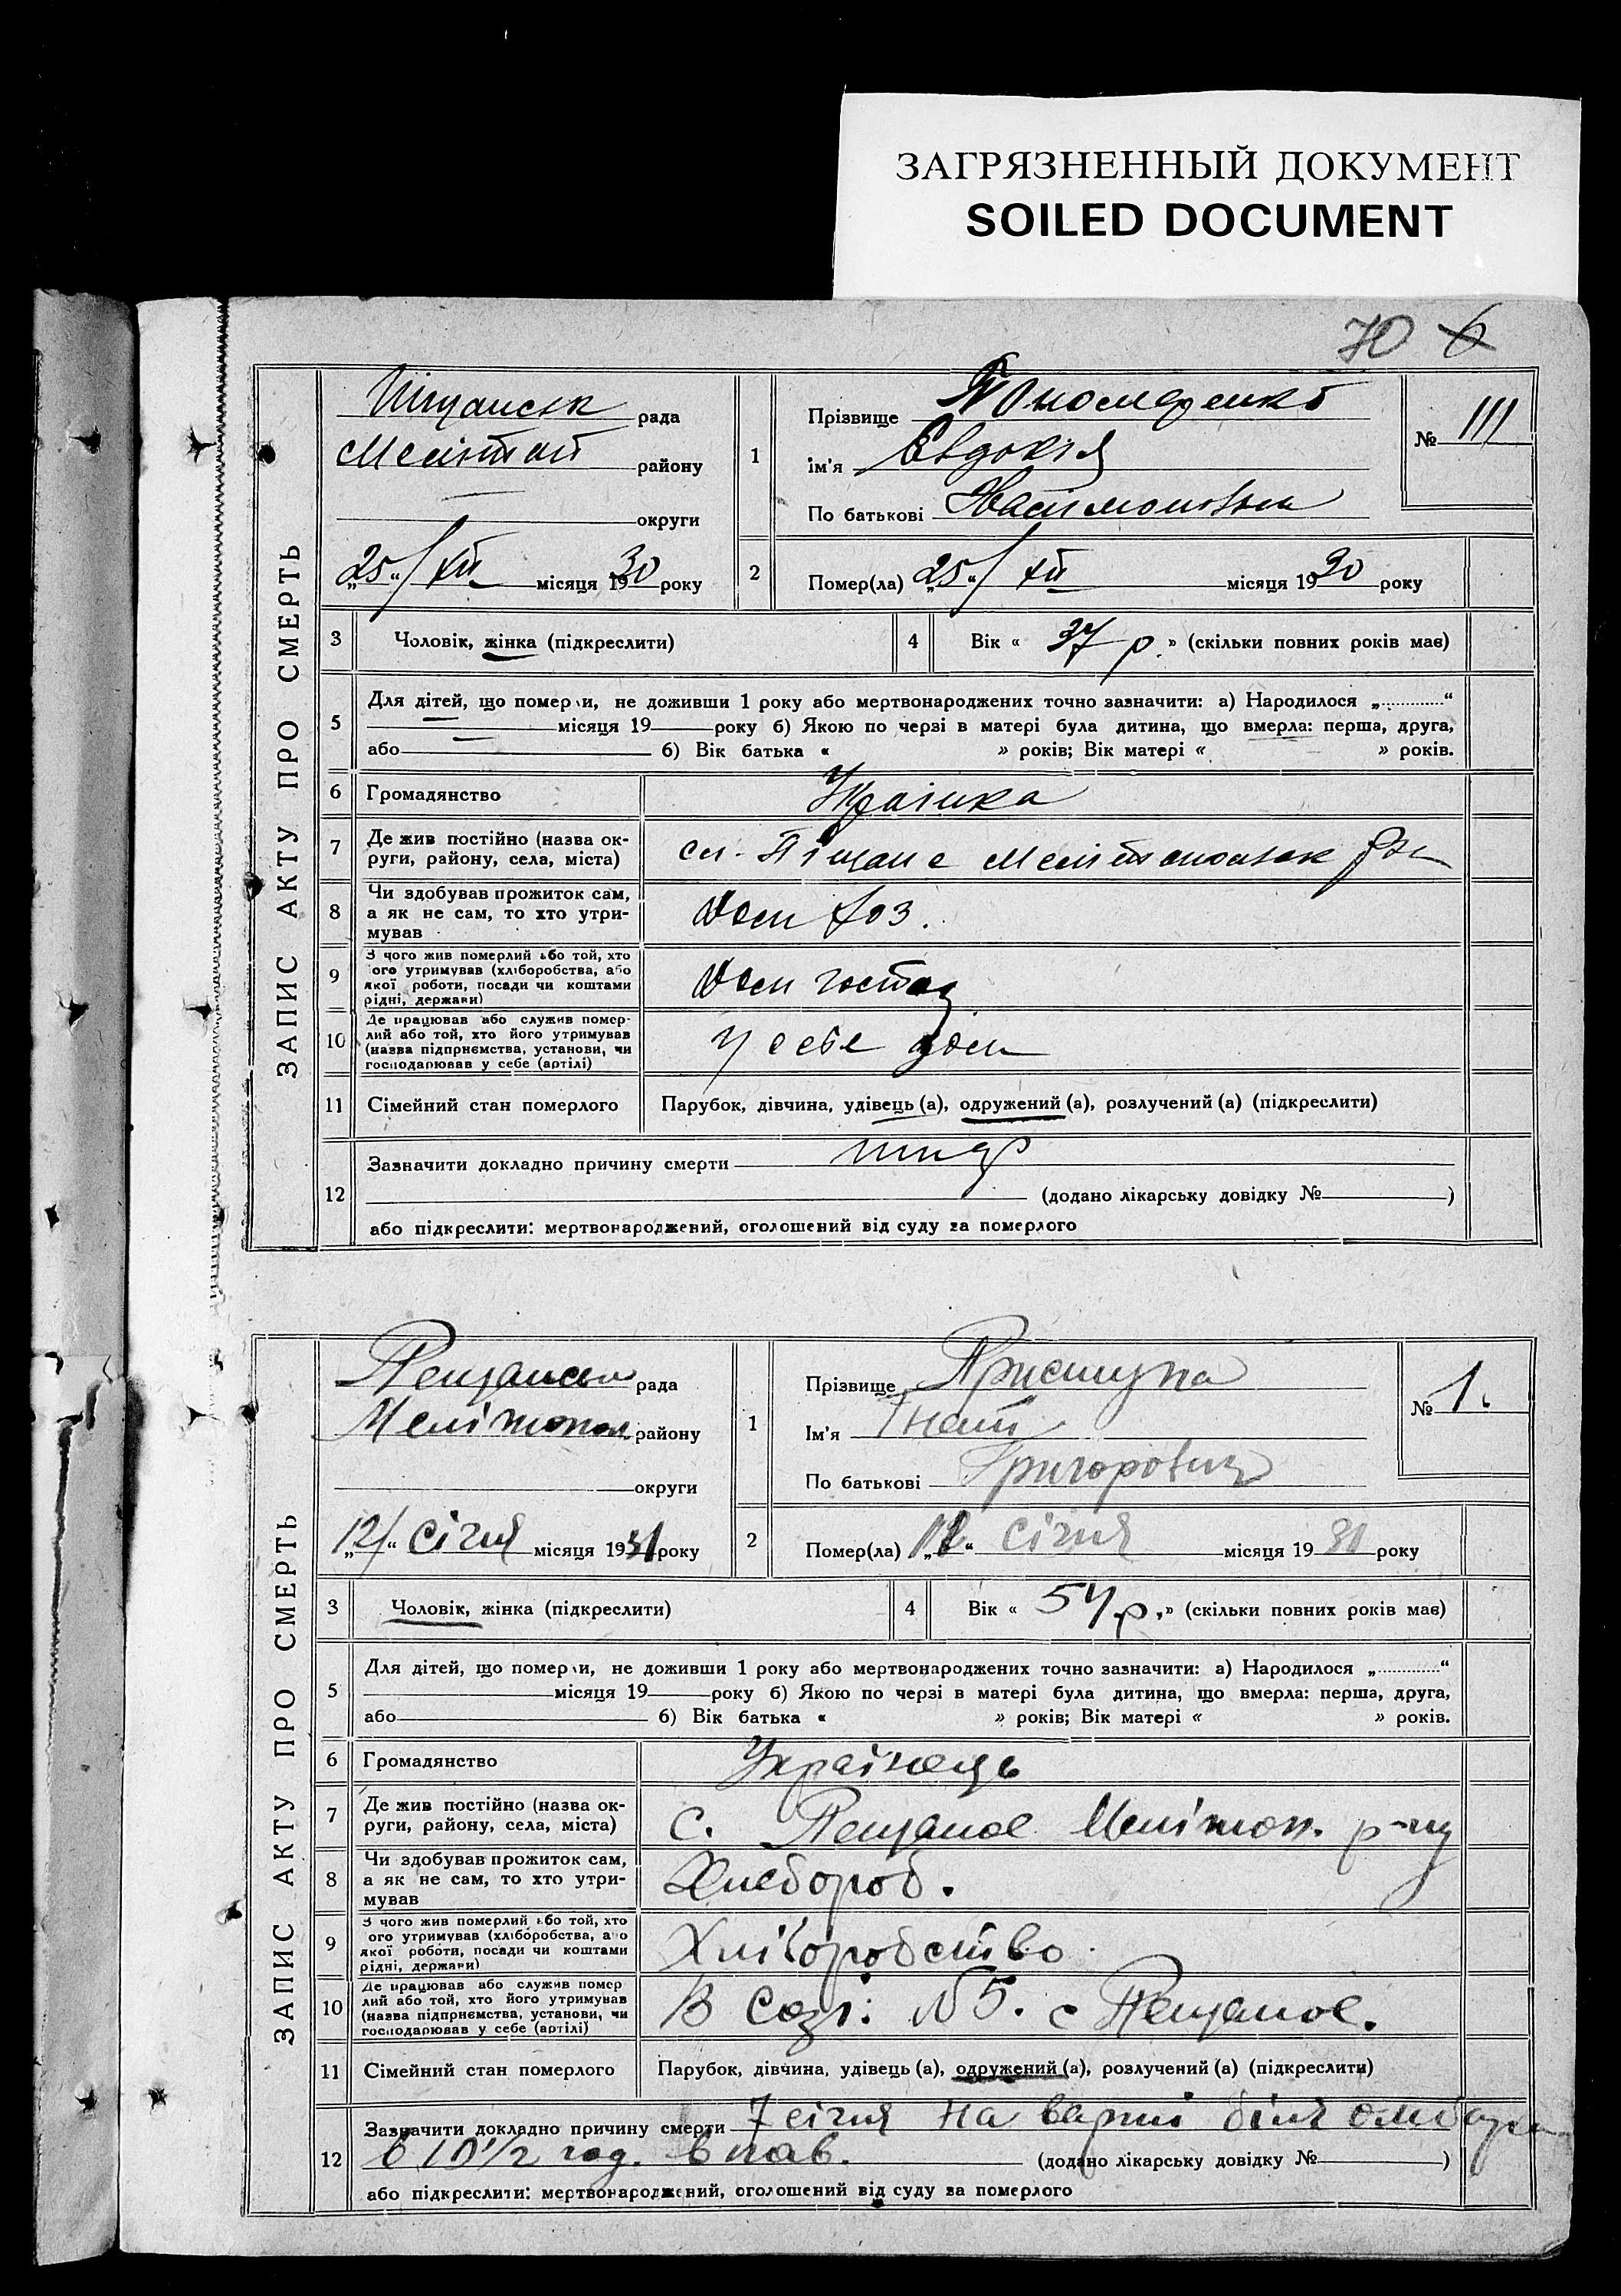 ЗАГРЯЗНЕННЫЙ ДОКУМЕНТ
SOILED DOCUMENT
70 6
ЗАПИС АКТУ ПРО СМЕРТЬ
Піщанськ рада
Меліт район району
округи
„25“/XII місяця 1930 року
1
Прізвище Пономаренко
ім'я Евдокія
По батькові
№ 111
2
Помер(ла) „25“/XII місяця 1930 року
3 Чоловік, жінка (підкреслити)
4 Вік « 37 р. » (скільки повних років має)
5
Для дітей, що померли, не доживши 1 року або мертвонароджених точно зазначити: а) Народилося „............“
місяця 19 року б) Якою по черзі в матері була дитина, що вмерла: перша, друга,
або б) Вік батька « » років; Вік матері « » років.
6 Громадянство Українка
7 Де жив постійно (назва ок-
руги, району, села, міста) сл. Піщане Мелітопольск р-н
8 Чи здобував прожиток сам,
а як не сам, то хто утри-
мував Дом хоз.
9 З чого жив померлий або той, хто
ого утримував (хліборобства, або
якої роботи, посади чи коштами
рідні, держави) Дом господ
10 Де працював або служив помер-
лий або той, хто його утримував
(назва підприємства, установи, чи
господарював у себе (артілі) У себе дом
11 Сімейний стан померлого Парубок, дівчина, удівець (а), одружений (а), розлучений (а) (підкреслити)
12 Зазначити докладно причину смерти
(додано лікарську довідку № )
або підкреслити: мертвонароджений, оголошений від суду за померлого
ЗАПИС АКТУ ПРО СМЕРТЬ
Пещанськ рада
Мелітопол району
округи
„12/“ січня місяця 1931 року
1
Прізвище Приступа
Ім'я Гнат
По батькові Григорович
№ 1.
2
Помер(ла) „12“ січня місяця 1931 року
3 Чоловік, жінка (підкреслити)
4 Вік « 54 р. » (скільки повних років має)
5
Для дітей, що померли, не доживши 1 року або мертвонароджених точно зазначити: а) Народилося „............“
місяця 19 року б) Якою по черзі в матері була дитина, що вмерла: перша, друга,
або б) Вік батька « » років; Вік матері « » років.
6 Громадянство Українець
7 Де жив постійно (назва ок-
руги, району, села, міста) с. Пещаное Мелітоп. р-ну
8 Чи здобував прожиток сам,
а як не сам, то хто утри-
мував Хлебороб.
9 З чого жив померлий або той, хто
ого утримував (хліборобства, або
якої роботи, посади чи коштами
рідні, держави) Хліборобство
10 Де працював або служив помер
лий або той, хто його утримував
(назва підприємства, установи, чи
господарював у себе (артілі) В Созі: №5. с Пещаное.
11 Сімейний стан померлого Парубок, дівчина, удівець (а), одружений (а), розлучений (а) (підкреслити)
12 Зазначити докладно причину смерти 7 січня на варті біля омбару
в 10 1/2 год. впав. (додано лікарську довідку № )
або підкреслити: мертвонароджений, оголошений від суду за померлого